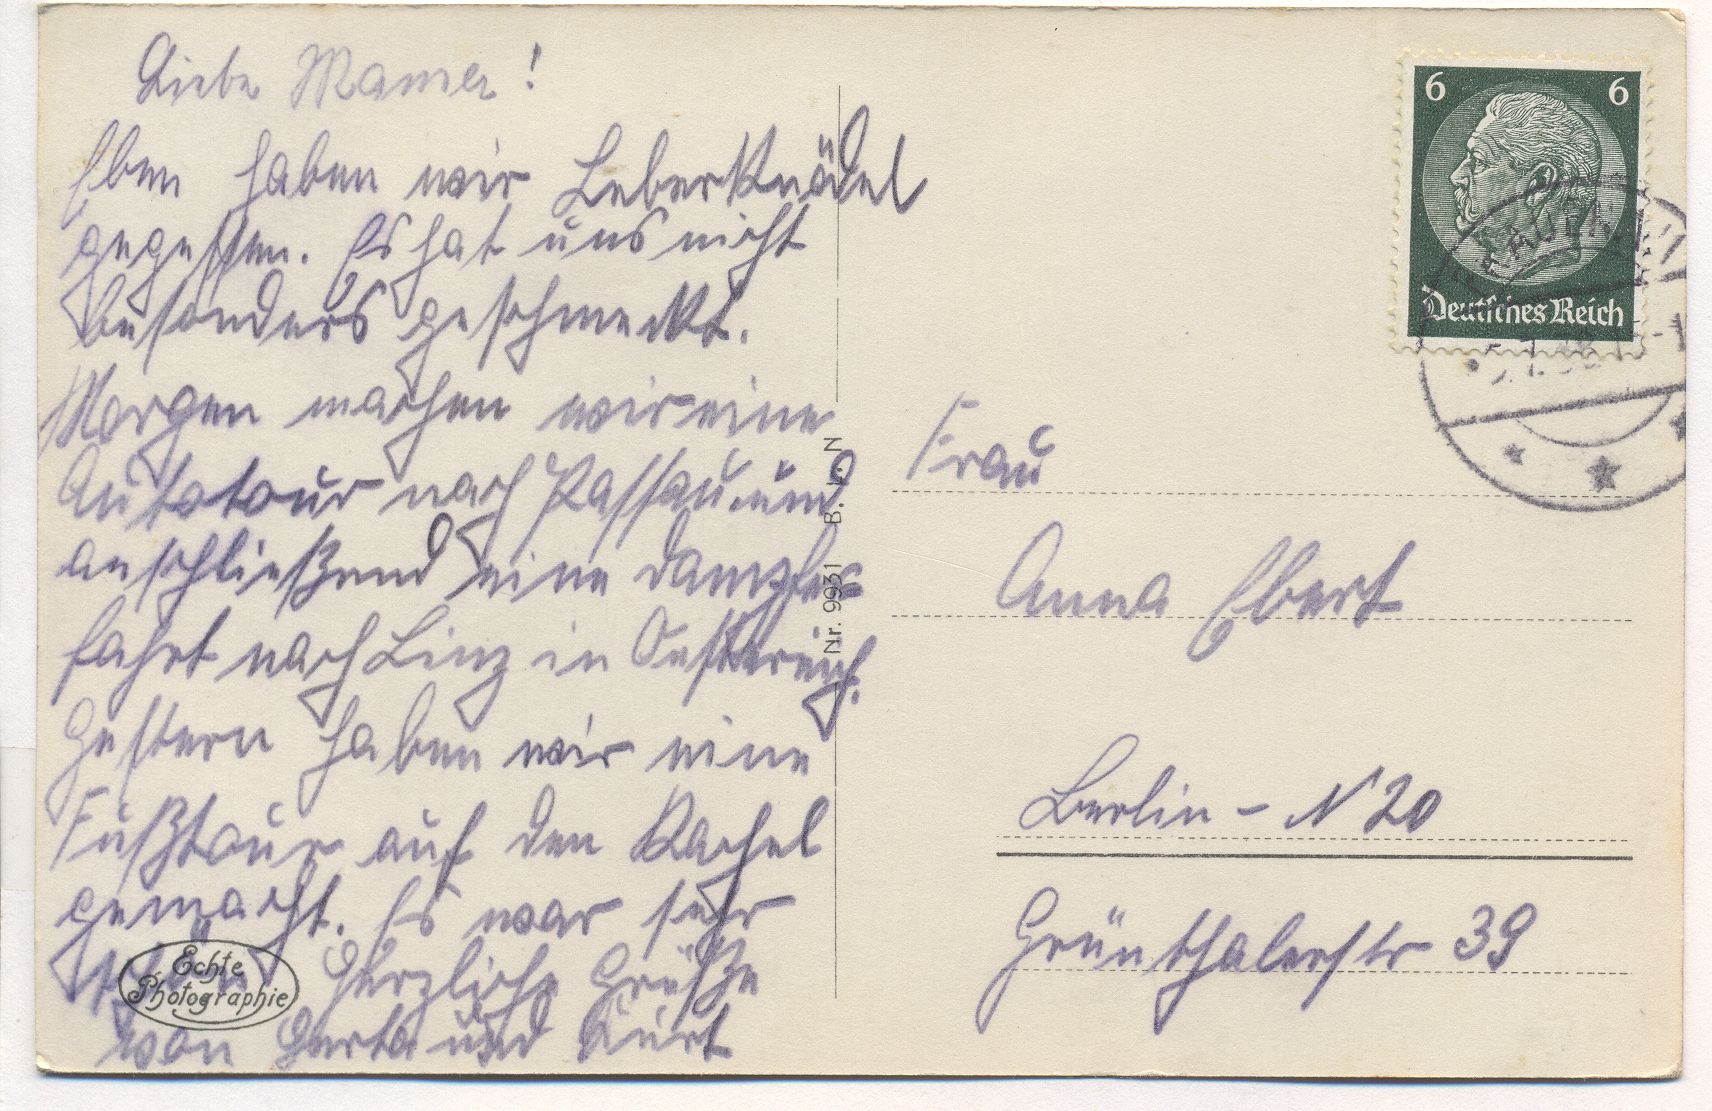 Liebe Mama!
Eben haben wir Leberknödel
gegessen. Es hat uns nicht
besonders geschmeckt.
Morgen machen wir eine
Autotour nach Passau und
anschließend eine Dampfer-
fahrt nach Linz in Oestereich.
Gestern haben wir eine
Fußtour auf den Rachel
gemacht. Es war sehr
schön Herzliche Grüße
von Gerta und Kurt
Echte
Photographie
Nr. 9931 B. i. N
6 6
Deutsches Reich
Frau
Anna Ebert
Berlin - N 20
Grünthalerstr 39